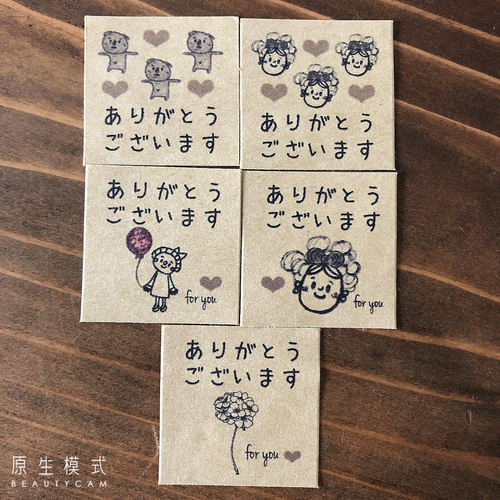 ありがとう
ございます
ありがとう
ございます
ありがとう
ございます
for you
ありがとう
ございます
for you
ありがとう
ございます
for you
原生模式
BEAUTYCAM